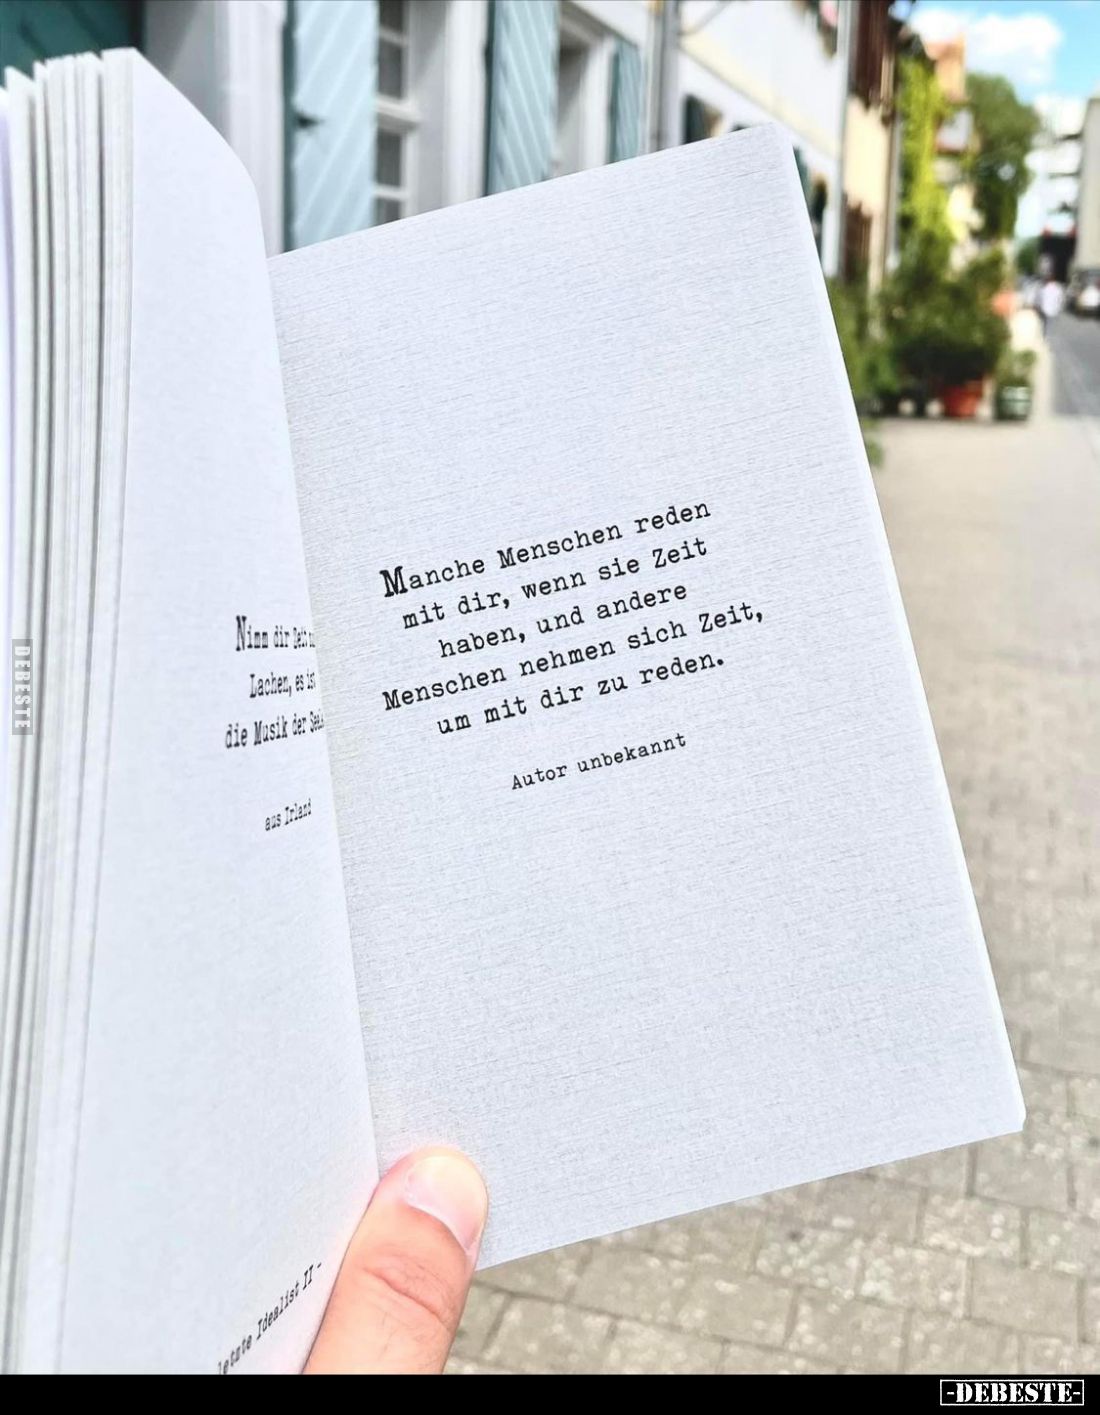 Nimm dir Zeit zu
Lachen, es ist
die Musik der Seele
aus Irland
letzte Idealist II -
Manche Menschen reden
mit dir, wenn sie Zeit
haben, und andere
Menschen nehmen sich Zeit,
um mit dir zu reden.
Autor unbekannt
DEBESTE
-DEBESTE-